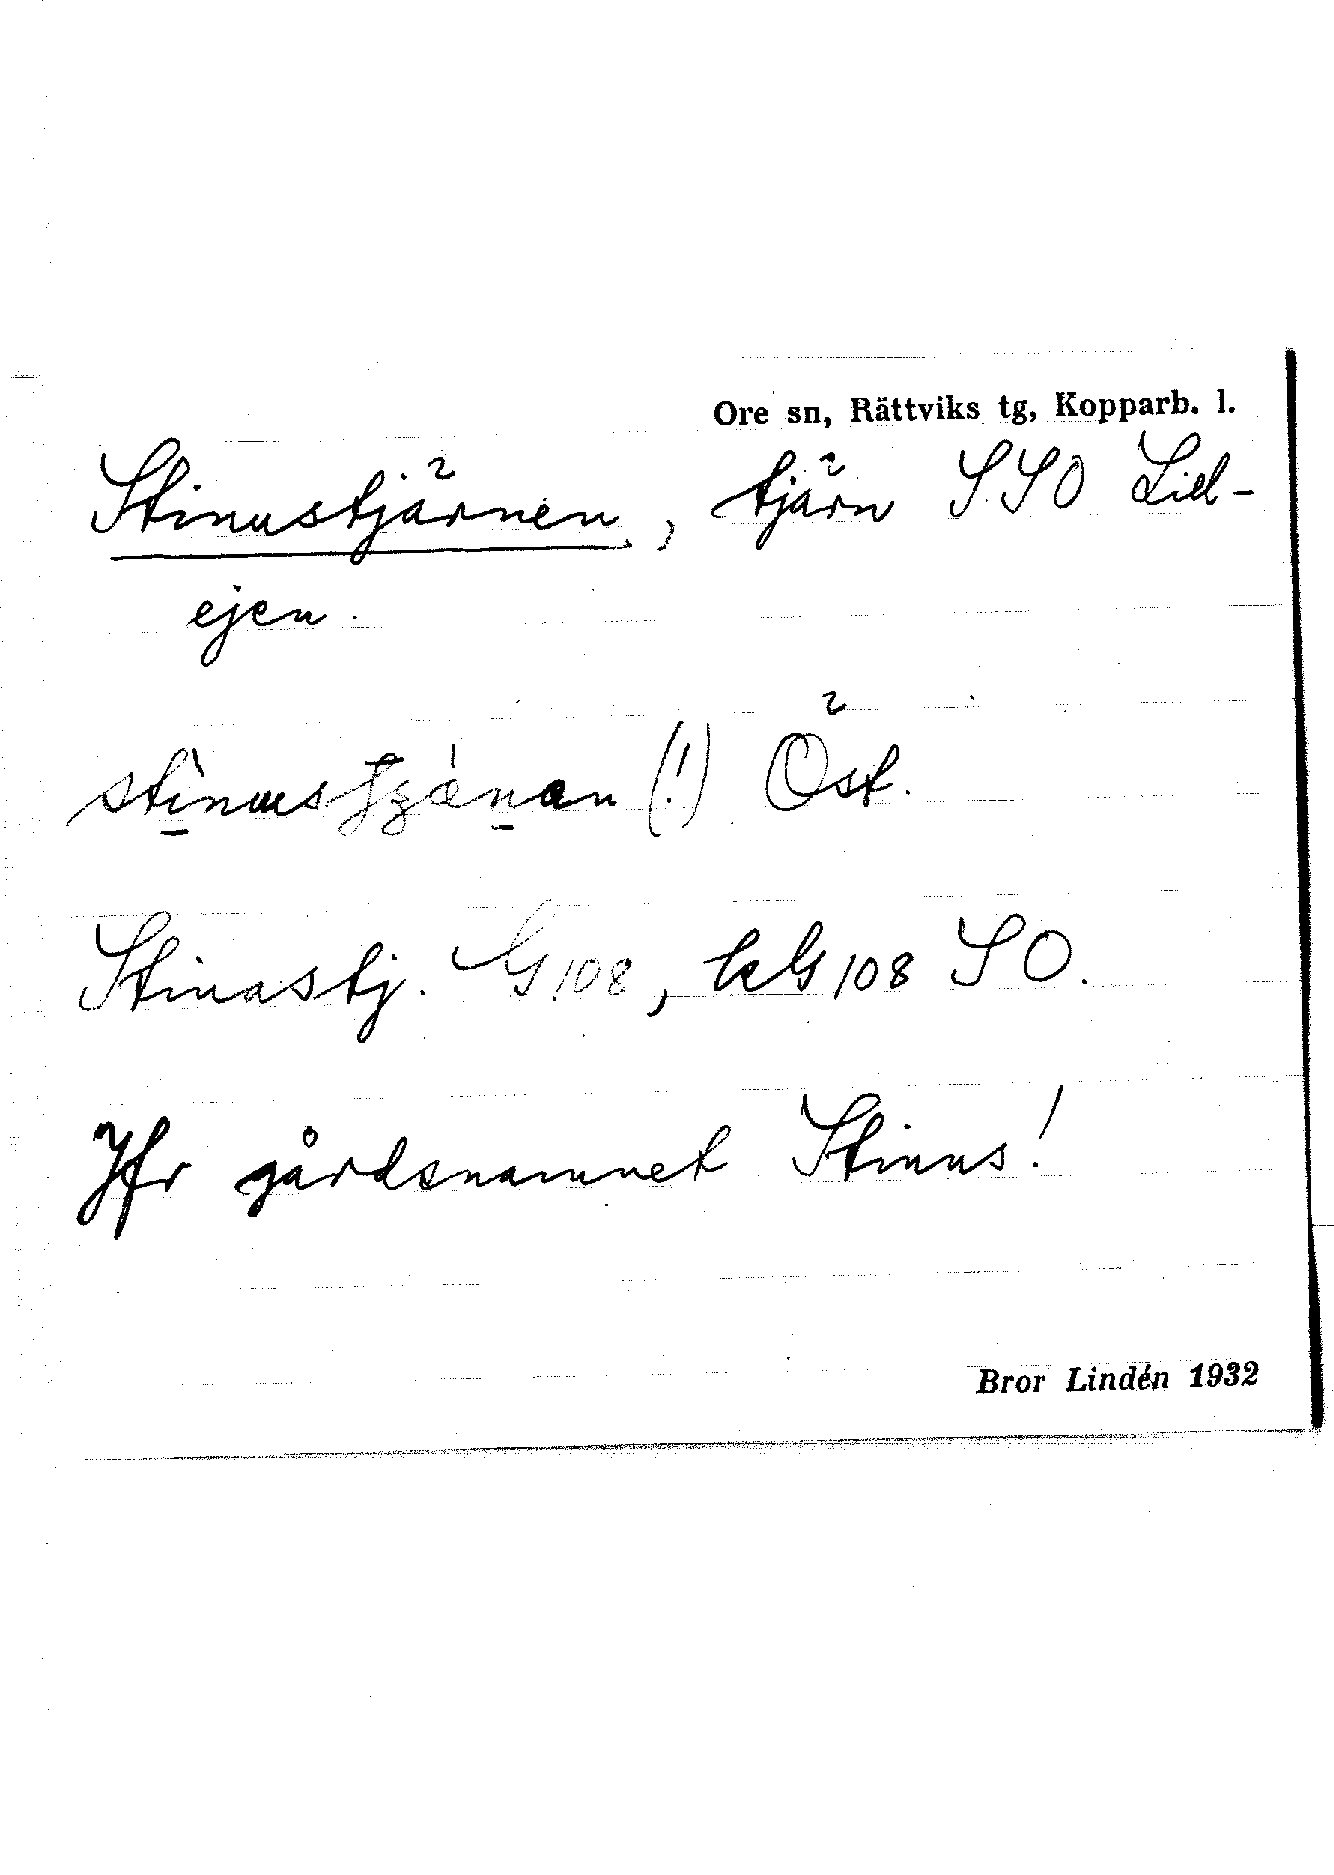 Ore sn, Rättviks tg, Kopparb. l.
Stinustjärnen, tjärn SSO Lid-
ejen.
(!) Öst.
Stinastj. G 108, kG 108 SO.
Jfr gårdsnamnet Stinus!
Bror Lindén 1932